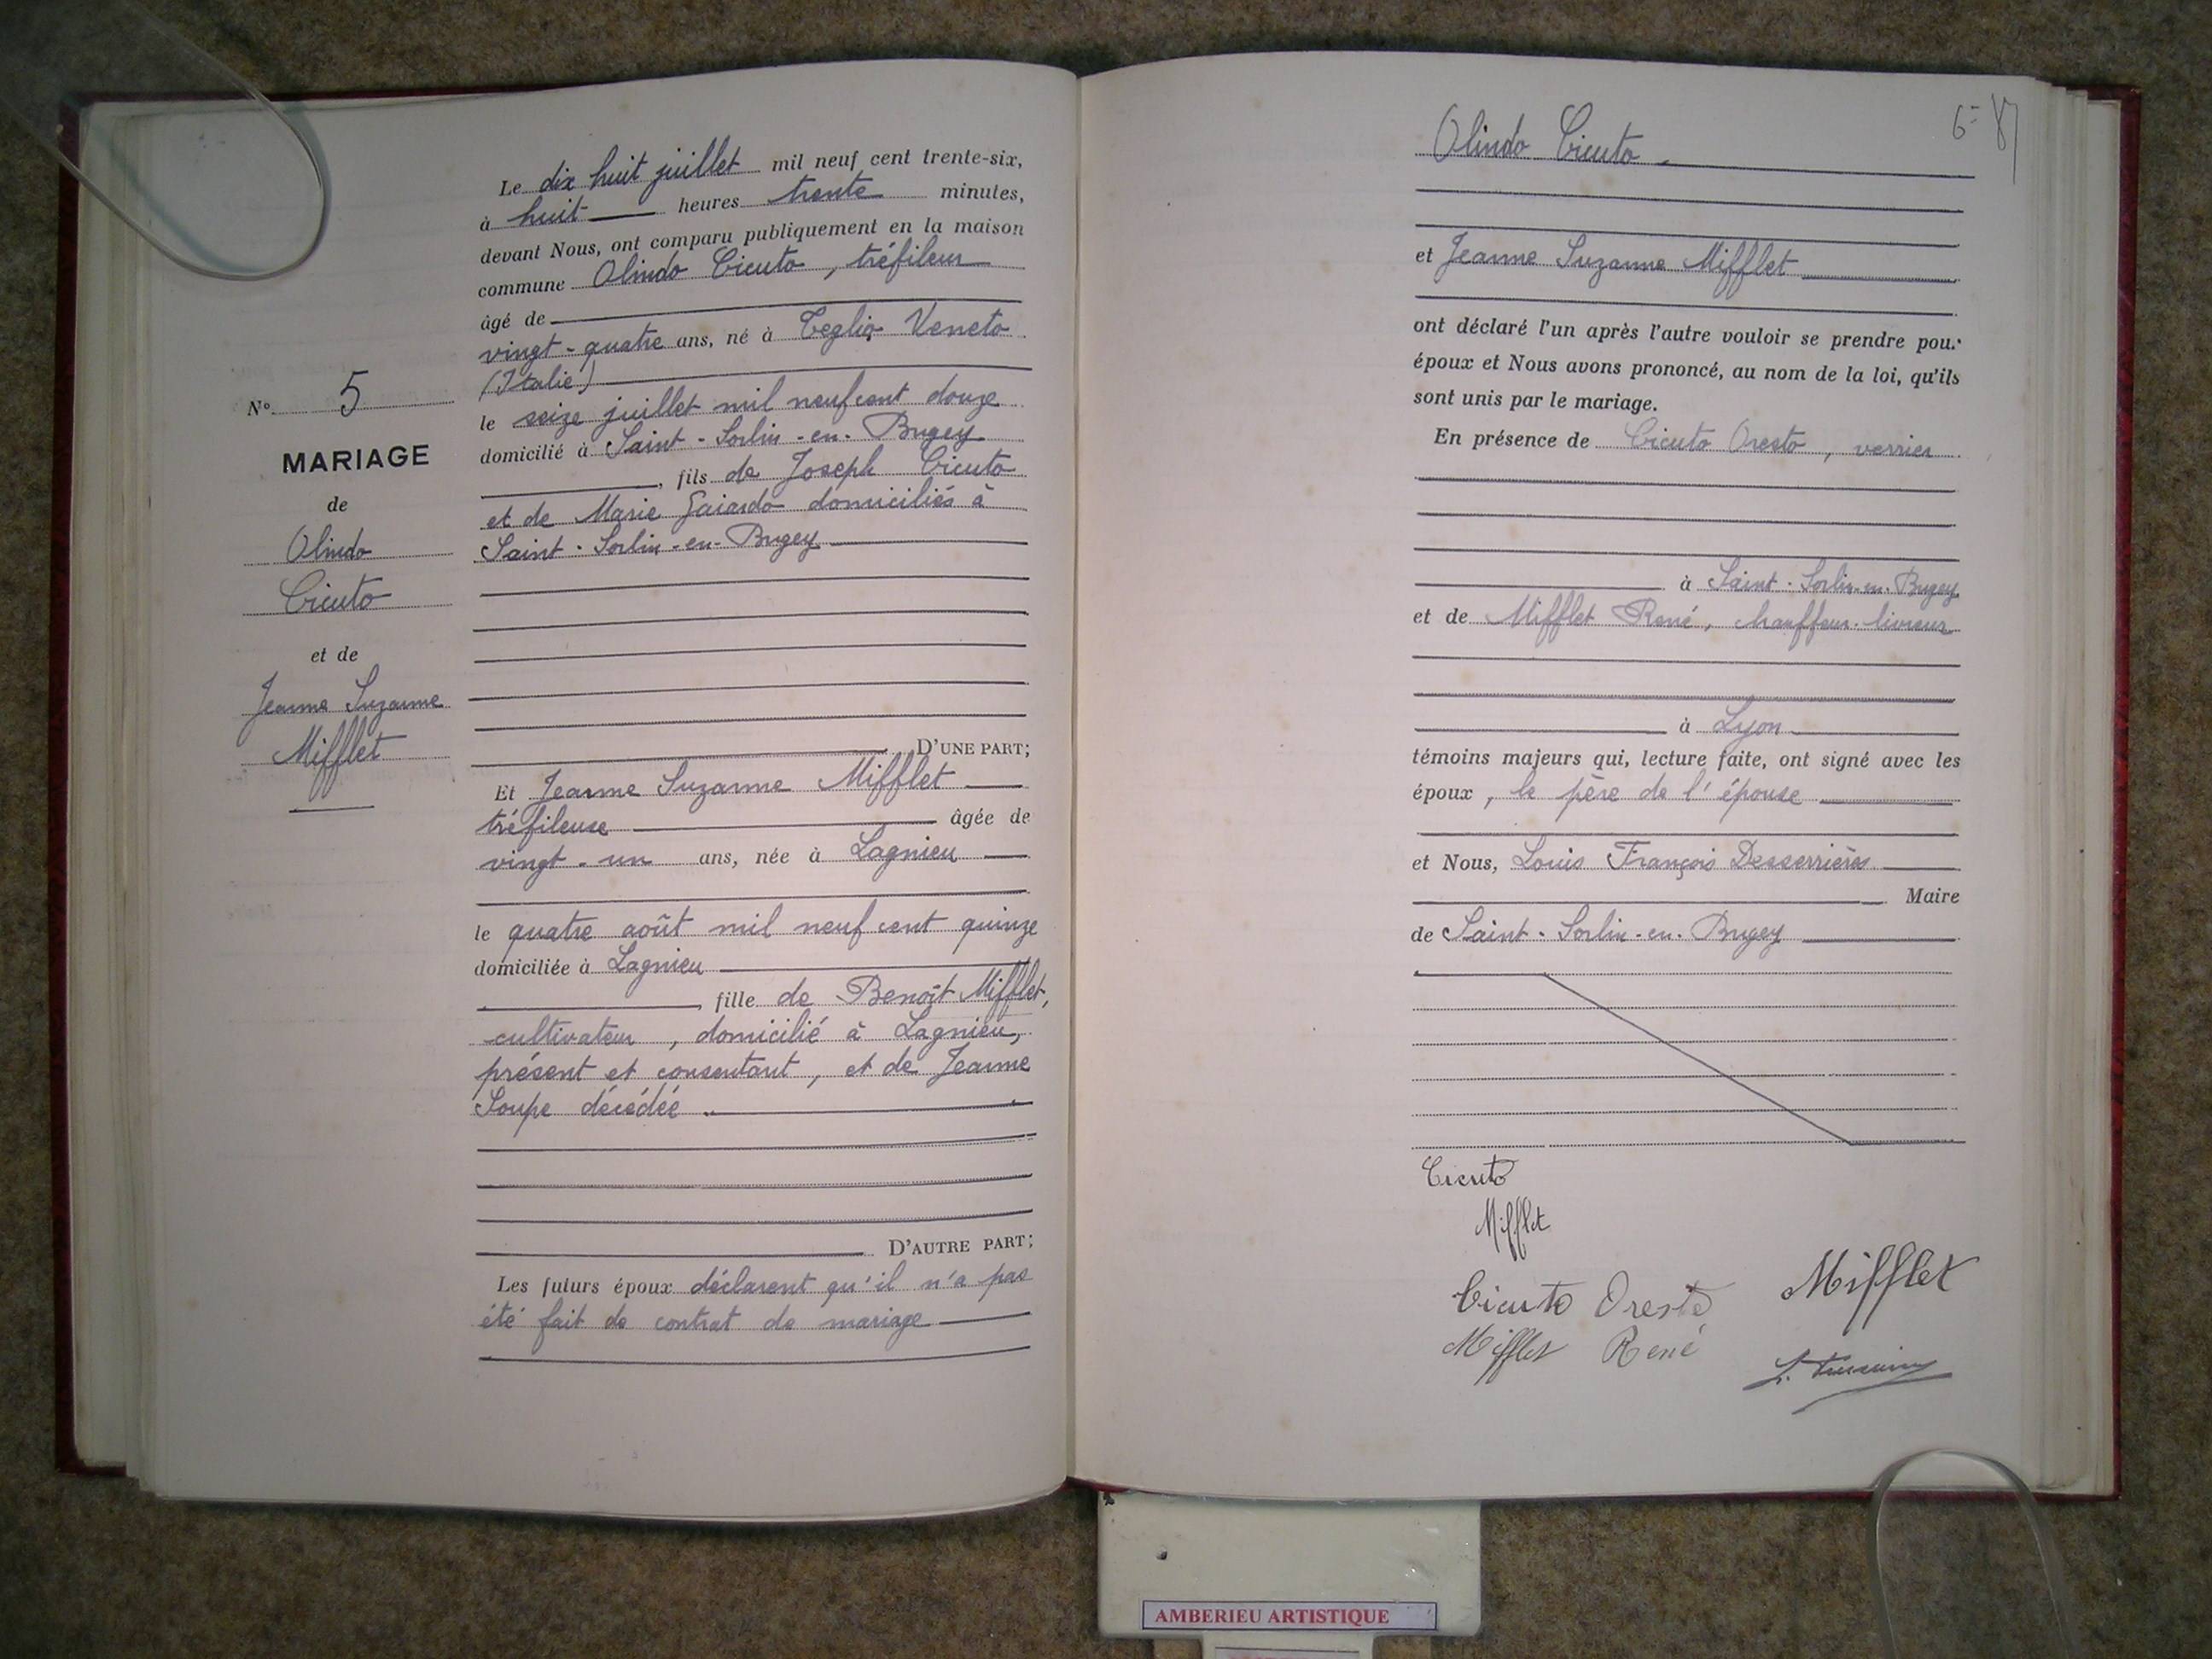 Le dix huit juillet mil neuf cent trente-six,
à huit heures trente minutes,
devant Nous, ont comparu publiquement en la maison
commune Olindo Cicuto, tréfileur
âgé de
vingt-quatre ans, né à Teglio Veneto
(Italie)
le seize juillet mil neuf cent douze
domicilié à Saint-Sorlin-en-Bugey
, fils de Joseph Cicuto
et de Marie Gaiardo domiciliés à
Saint-Sorlin-en-Bugey
N° 5
MARIAGE
de
Olindo
Cicuto
et de
Jeanne Suzanne
Mifflet
D'UNE PART;
Et Jeanne Suzanne Mifflet
tréfileuse âgée de
vingt-un ans, née à Lagnieu
le quatre août mil neuf cent quinze
domiciliée à Lagnieu
, fille de Benoît Mifflet,
cultivateur, domicilié à Lagnieu,
présent et consentant, et de Jeanne
Soupe décédée.
D'AUTRE PART;
Les futurs époux déclarent qu'il n'a pas
été fait de contrat de mariage
Olindo Cicuto.
et Jeanne Suzanne Mifflet
ont déclaré l'un après l'autre vouloir se prendre pour
époux et Nous avons prononcé, au nom de la loi, qu'ils
sont unis par le mariage.
En présence de Cicuto Oresto, verrier
à Saint-Sorlin-en-Bugey
et de Mifflet René, chauffeur-livreur
à Lyon
témoins majeurs qui, lecture faite, ont signé avec les
époux, le père de l'épouse
et Nous, Louis François Desserrières
Maire
de Saint-Sorlin-en-Bugey
Cicuto
Mifflet
Cicuto Oreste Mifflet
Mifflet René
AMBERIEU ARTISTIQUE